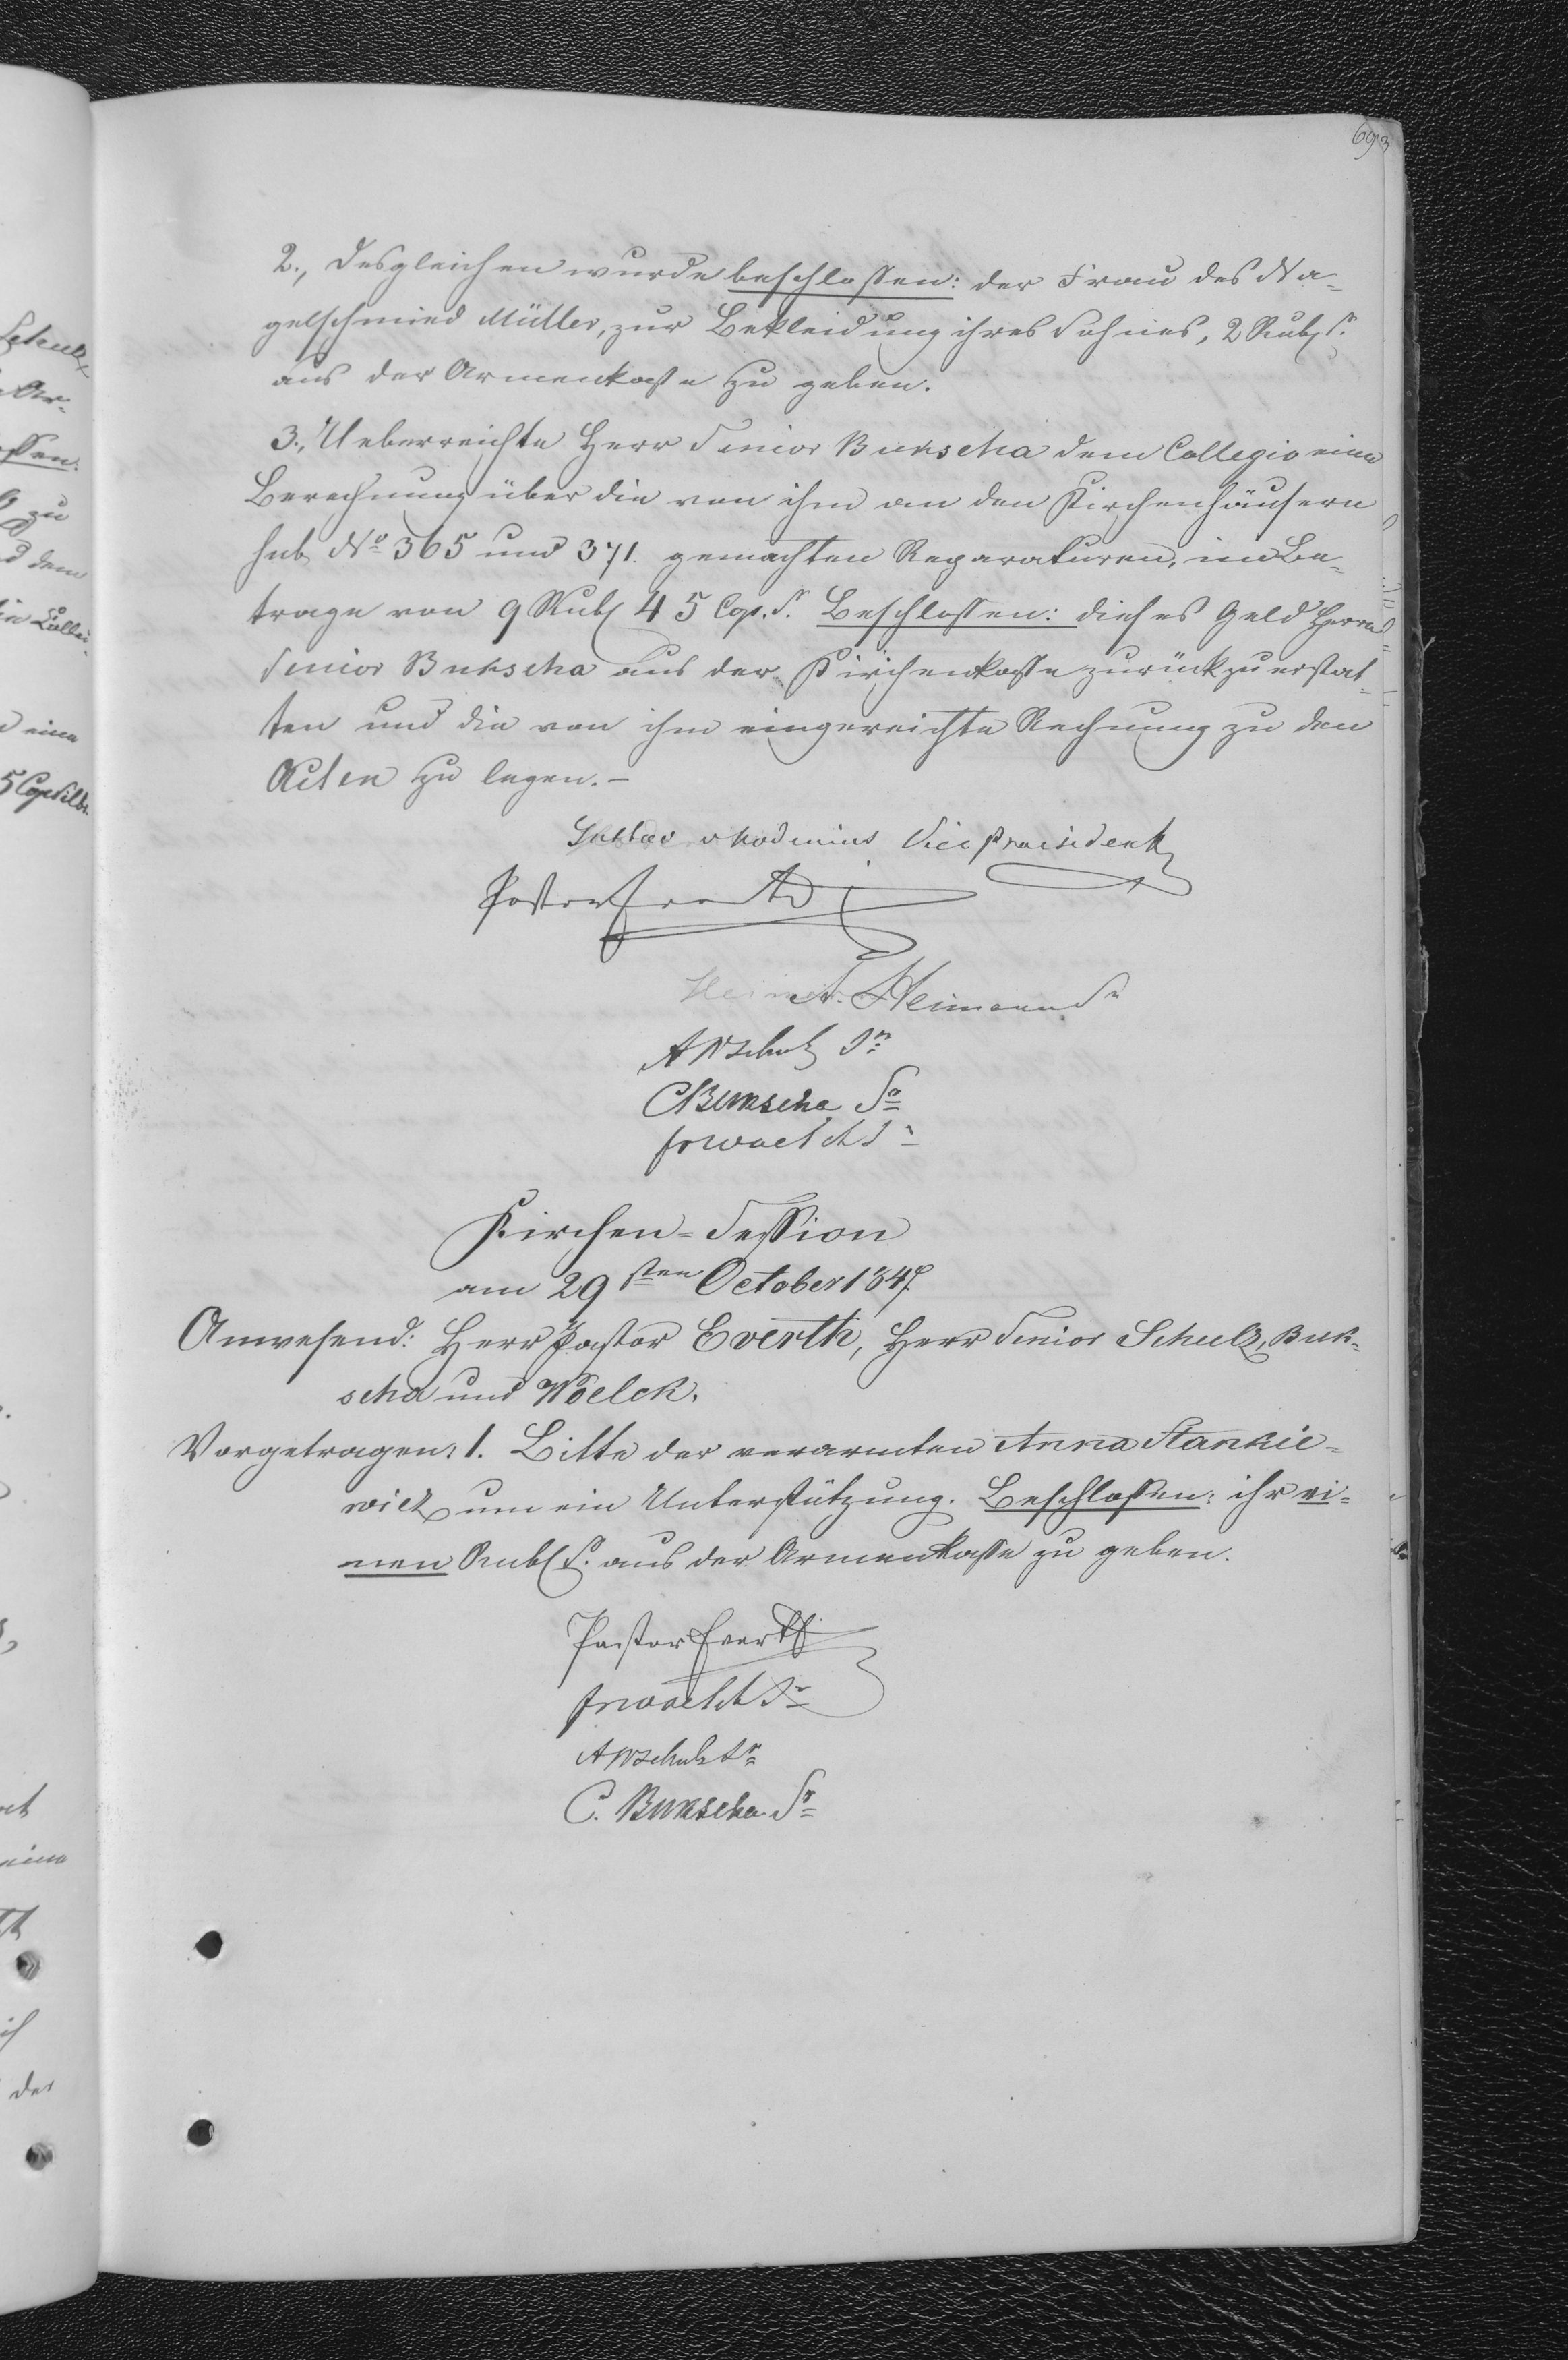 693
2., Desgleichen wurde beschlossen: der Frau des Na-
gelschmied Müller, zur Bekleidung ihres Sohnes, 2 Rub. S.
aus der Armenkasse zu geben.
3., Ueberreichte Herr Senior Bukscha dem Collegio eine
Berechnung über die von ihm an den Kirchenhäusern
sub No 365 und 371. gemachten Reparaturen, im Be-
trage von 9 Rub. 45 Cop. S. Beschlossen: dieses Geld Herrn
Senior Bukscha aus der Kirchenkasse zurückzuerstat-
ten und die von ihm eingereichte Rechnung zu den
Acten zu legen. –
Vice Praesident
Pastor Everth
A. Heimann Sr
A W Schulz Sr
C Bukscha Sr
Woelck Sr
Kirchen-Session
am 29sten October 1847.
Anwesend: Herr Pastor Everth, Herr Senior Schulz, Buk-
scha und Woelck.
Vorgetragen: 1. Bitte der verarmten Anna Stankie-
wicz um ein Unterstützung. Beschlossen: ihr ei-
nen Rub. S. aus der Armenkasse zu geben.
Pastor Everth
Woelck Sr
A W Schulz Sr
C. Bukscha Sr